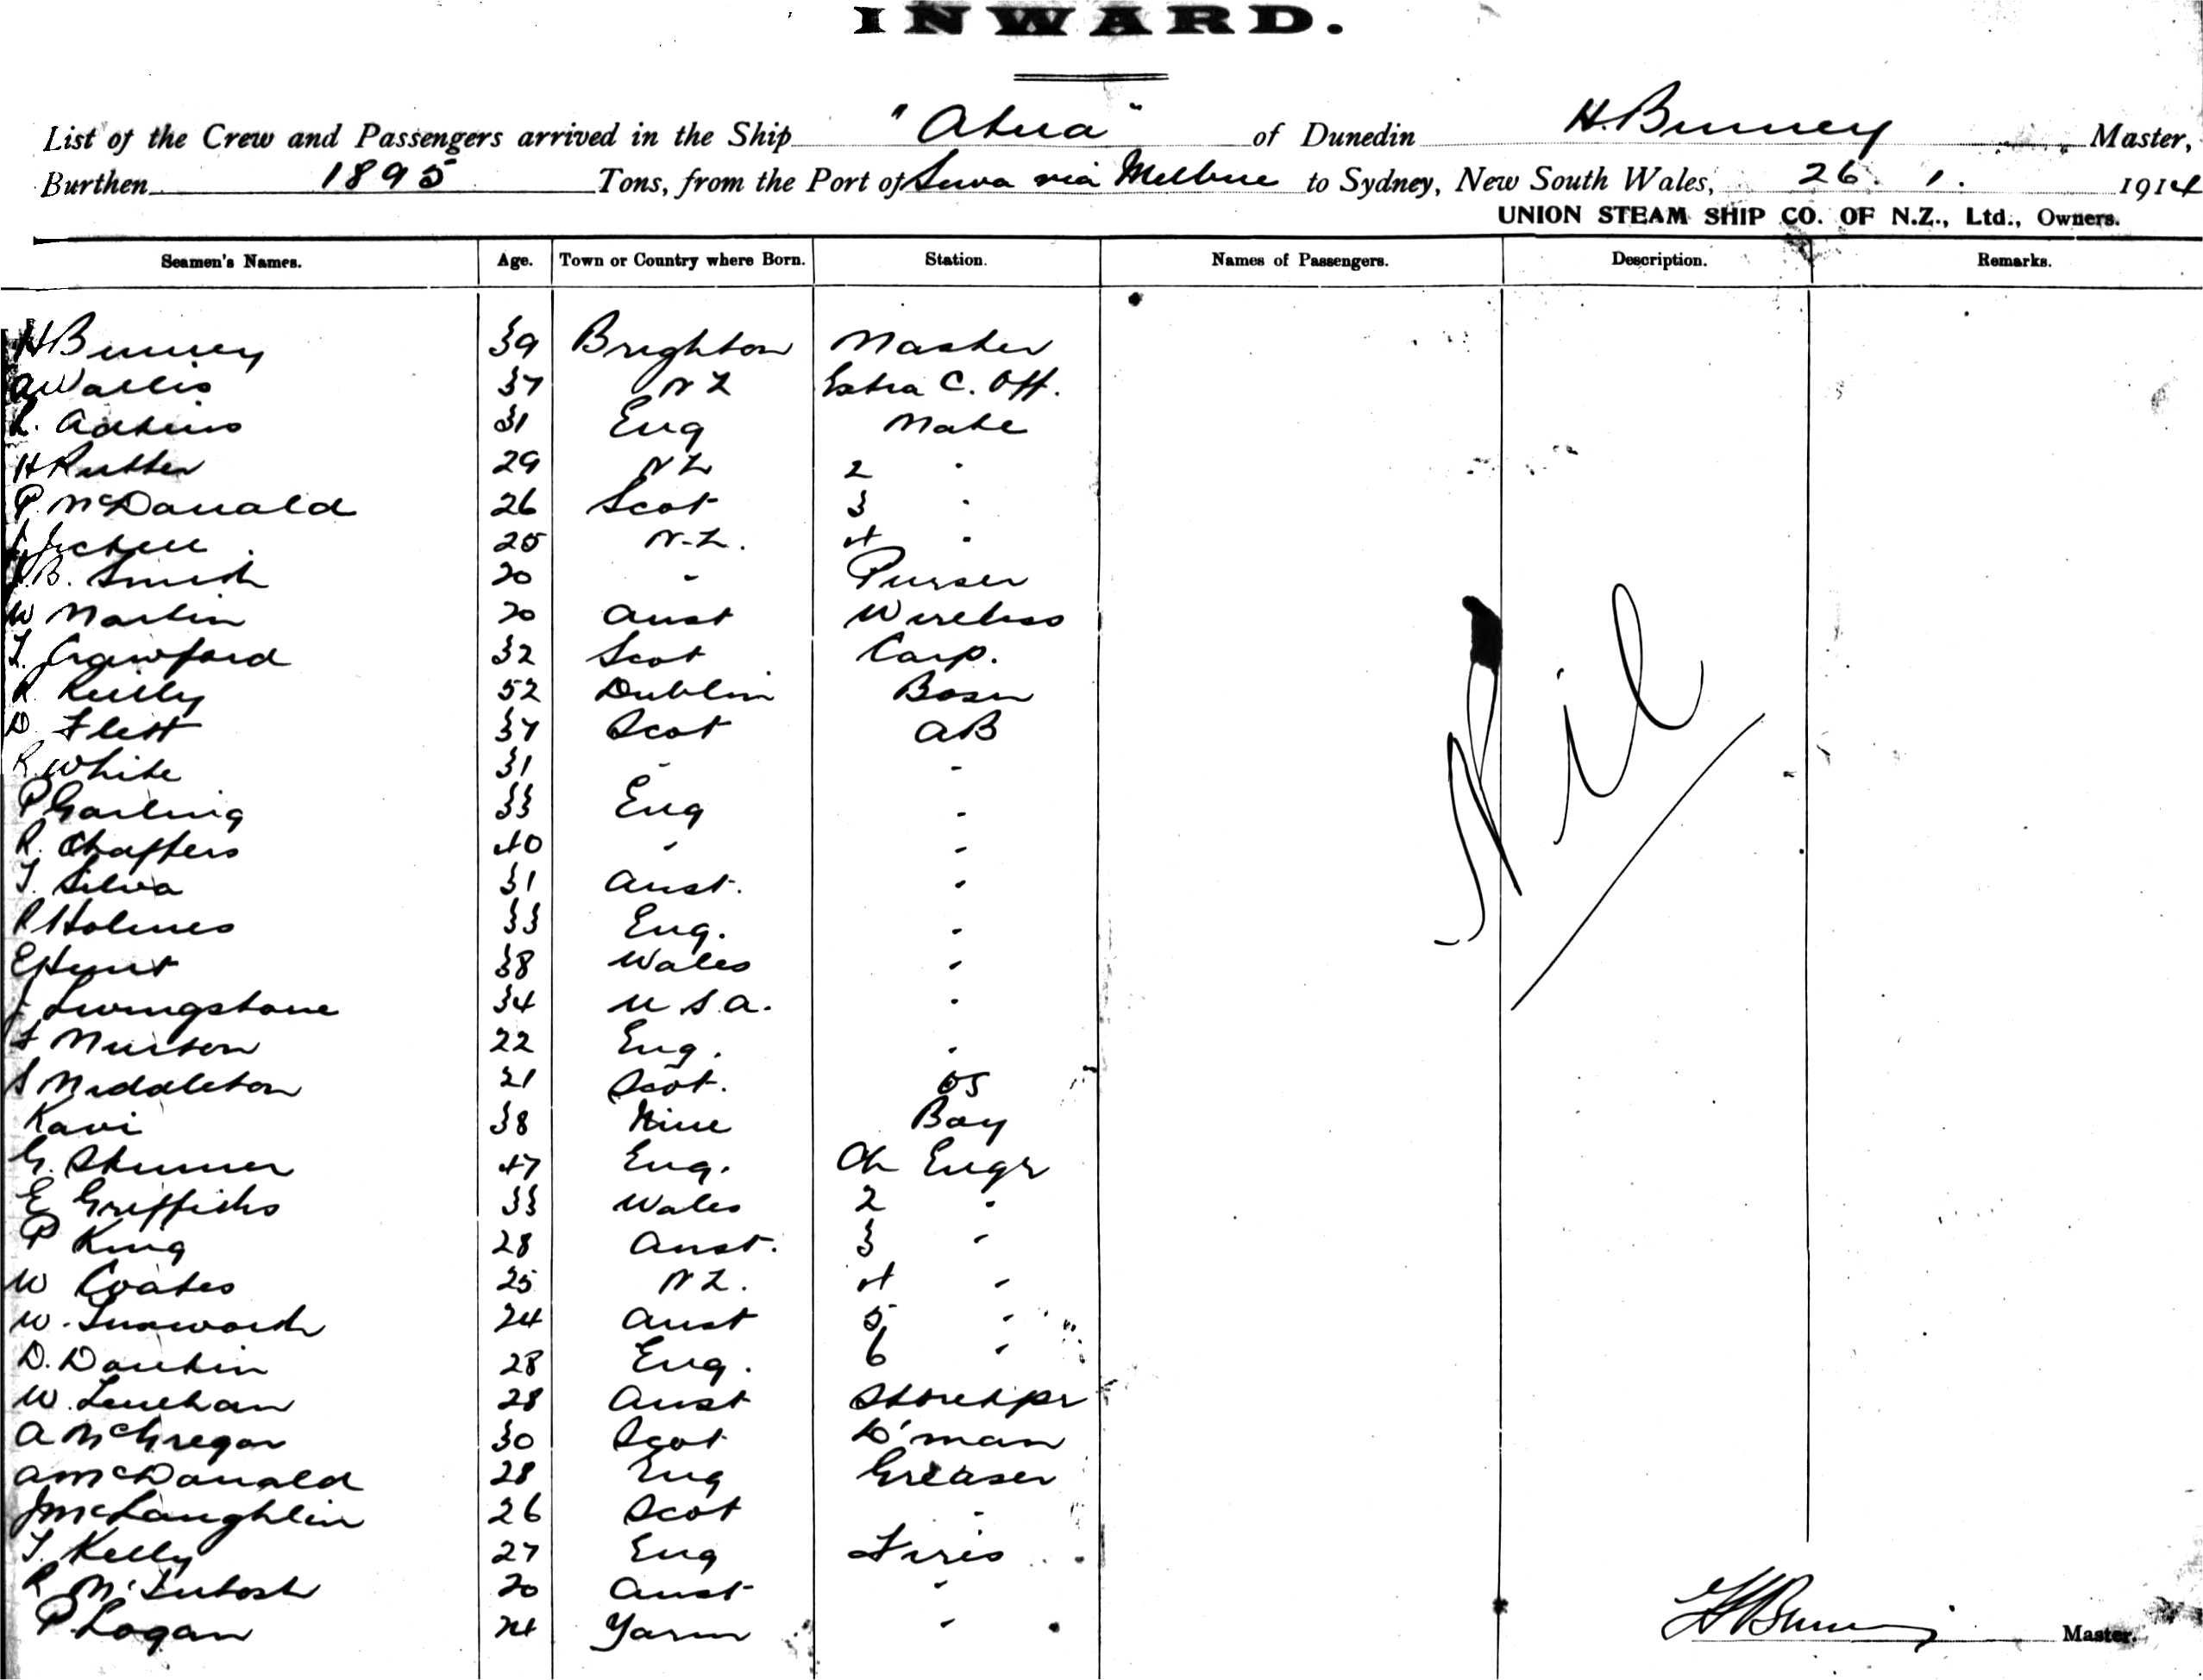 INWARD.
List of the Crew and Passengers arrived in the Ship "Atua" of Dunedin H. Bunney Master,
Burthen 1895 Tons, from the Port of Suva via Melbne to Sydney, New South Wales, 26. 1. 1914
UNION STEAM SHIP CO. OF N.Z., Ltd., Owners.
Seamen's Names. Age. Town or Country where Born. Station. Names of Passengers. Description. Remarks.
H Bunney 39 Brighton Master
A Wallis 37 NZ Extra C. Off.
L. Adkins 31 Eng Mate
H Rutter 29 NZ 2 "
P. McDonald 26 Scot 3 "
25 N.Z. 4 "
B. Smith 20 " Purser
W Martin 20 Aust Wireless
T. Crawford 32 Scot Carp.
R Reilly 52 Dublin Bosn
D. Flett 37 Scot AB
R. White 31 " "
P Garling 33 Eng "
R. Chaffers 40 " "
T. Silva 31 Aust. "
R Holmes 33 Eng. "
E Hunt 38 Wales "
J Livingstone 34 U.S.A. "
22 Eng. "
S Middleton 21 Scot. OS
Kavi 38 Niue Boy
G. Skinner 47 Eng. Ch Engr
E Griffiths 33 Wales 2 "
P King 28 Aust. 3 "
W Coates 25 NZ. 4 "
W. 24 Aust 5 "
D. 28 Eng. 6 "
W. Lenehan 28 Aust Storekpr
A McGregor 30 Scot D'man
A McDonald 28 Eng Greaser
J McLaughlin 26 Scot "
T. Kelly 27 Eng Fires
R McIntosh 20 Aust "
P. Logan 24 Yarm "
Nil
H Bunney Master.